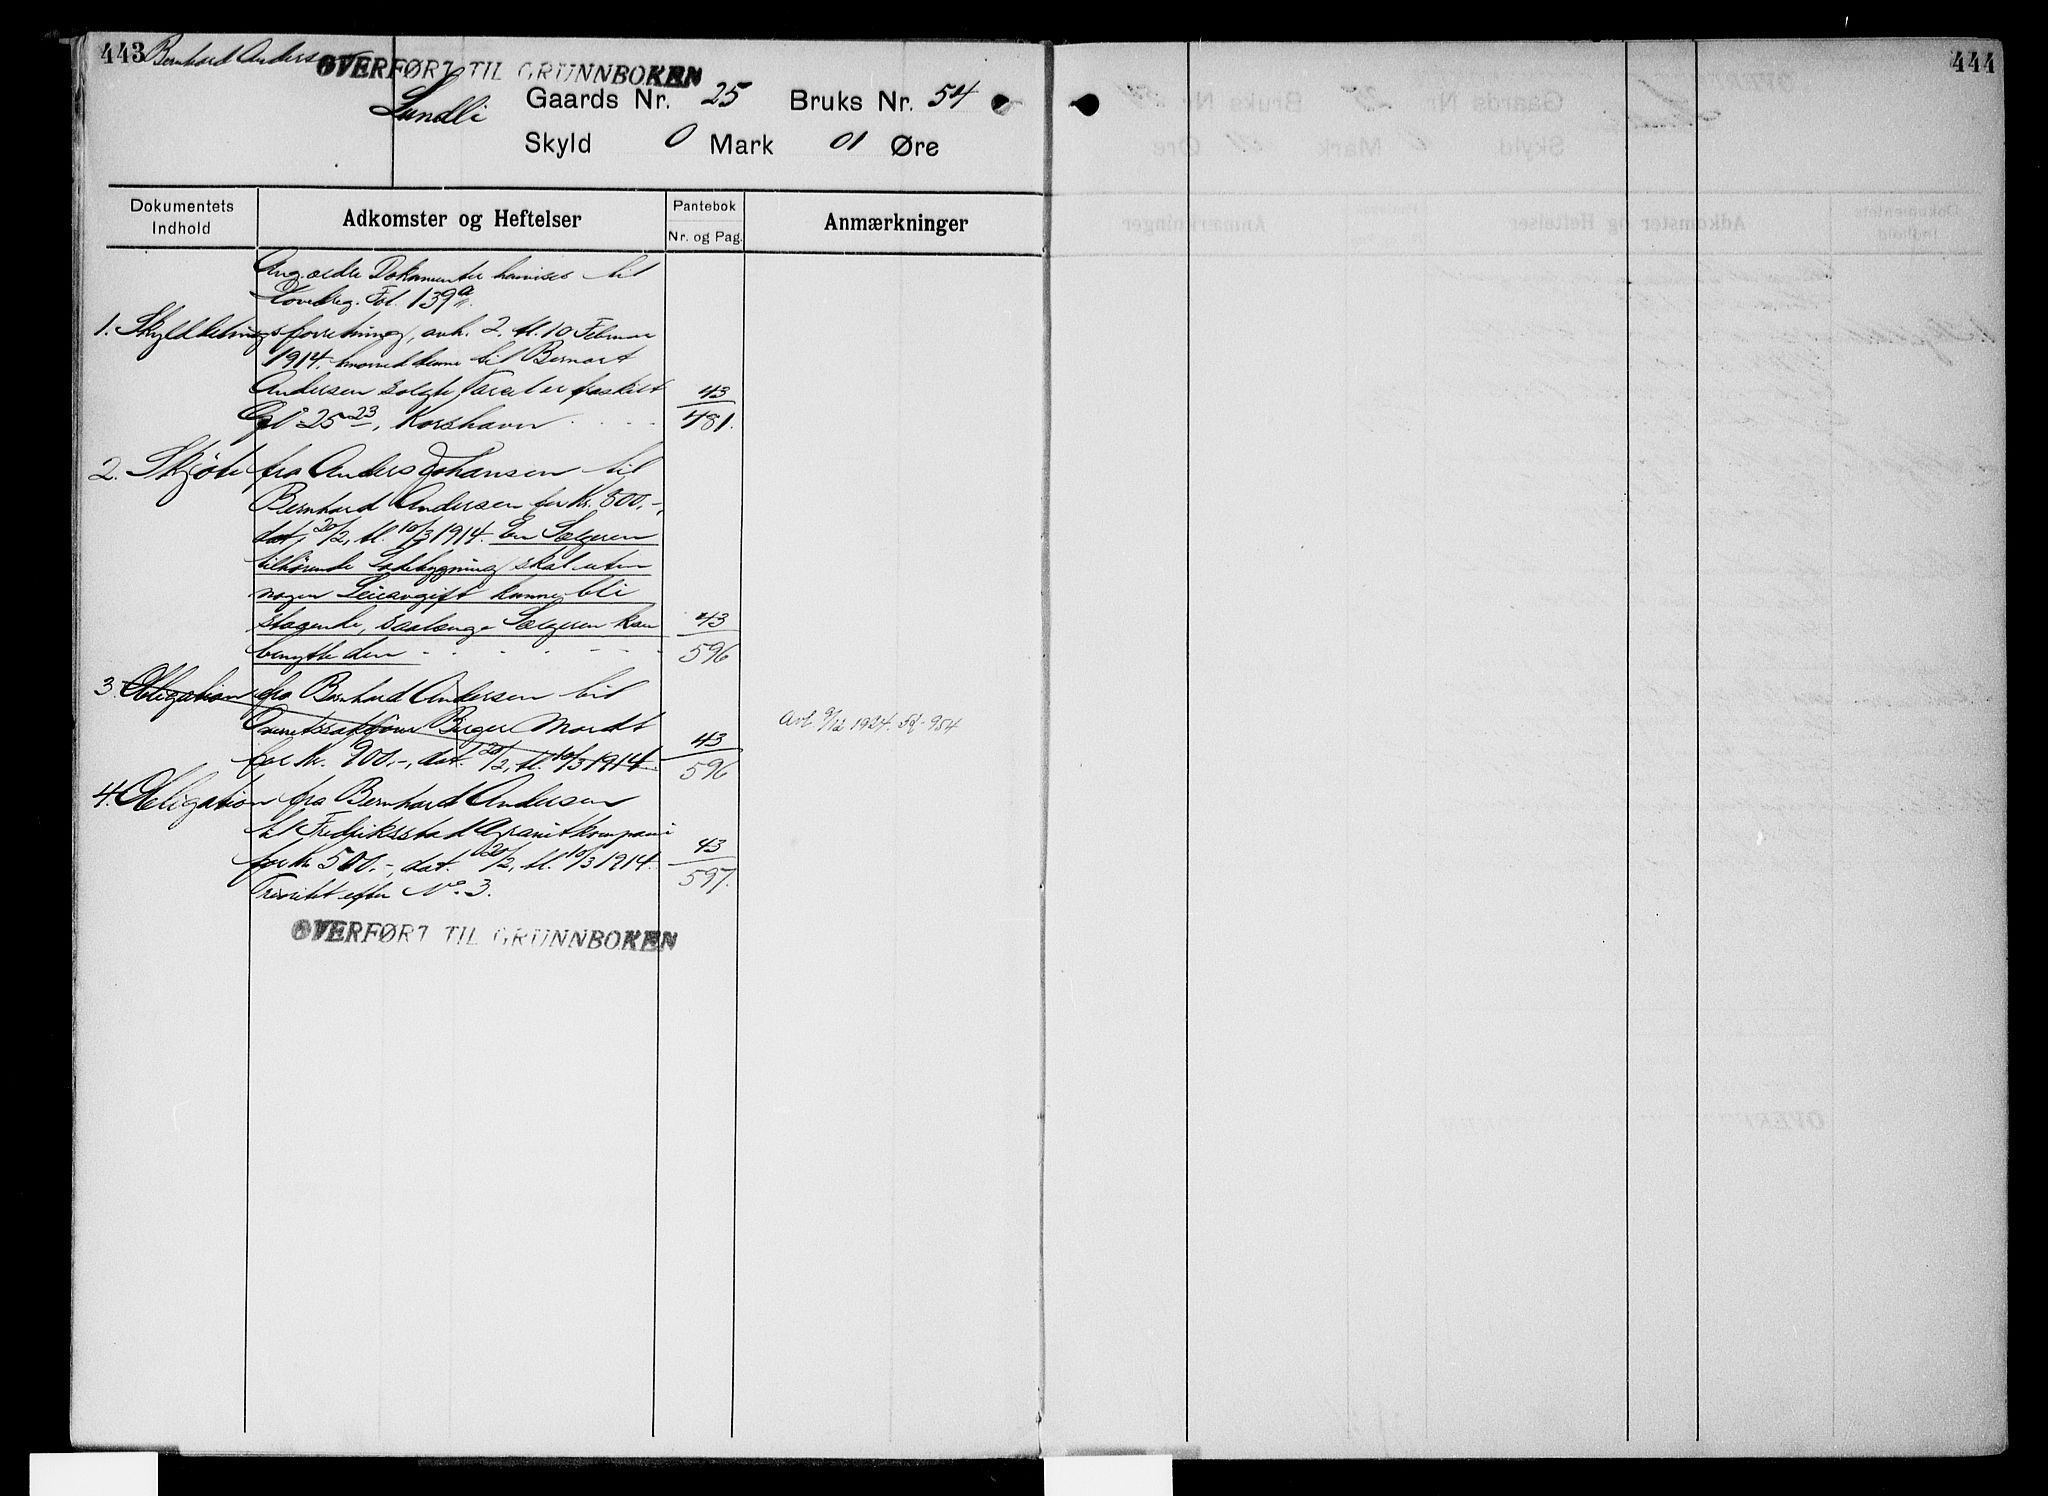 443 Bernhard Anders
OVERFØRT TIL GRUNNBOKEN
Lundli
Gaards Nr. 25 Bruks Nr. 54
Skyld 0 Mark 01 Øre
444
Dokumentets Indhold
Adkomster og Heftelser
Pantebok
Nr. og Pag.
Anmærkninger
Ang. ældre Dokumenter henvises til
Hovedreg. Fol. 139a
1. Skylddelingsforretning, avh. 2. tl. 10 Februar
1914, hvorved denne til Bernart
Andersen solgte Parcel er fraskilt
Gl 25 23, Korshavn . . . . 43/481.
2. Skjøte fra Anders Johansen til
Bernhard Andersen for Kr. 800.-,
dat. 20/2, tl. 10/3 1914. En Sælgeren
tilhørende Sidebygning skal uten
nogen Leieavgift kunne bli
staaende, saalænge Sælgeren kan
benytte den - - - - - - 43/596
3. Obligation fra Bernhard Andersen til
Overretssakfører Birger Mordt
for Kr. 900.-, dat. 20/2, tl. 10/3 1914. 43/596
Avl. 9/12 1924. Df - 954
4. Obligation fra Bernhard Andersen
til Fredrikstad Granitkompani
for Kr 500.-, dat. 20/2, tl. 10/3 1914. 43/597.
Prioritet efter No. 3.
OVERFØRT TIL GRUNNBOKEN